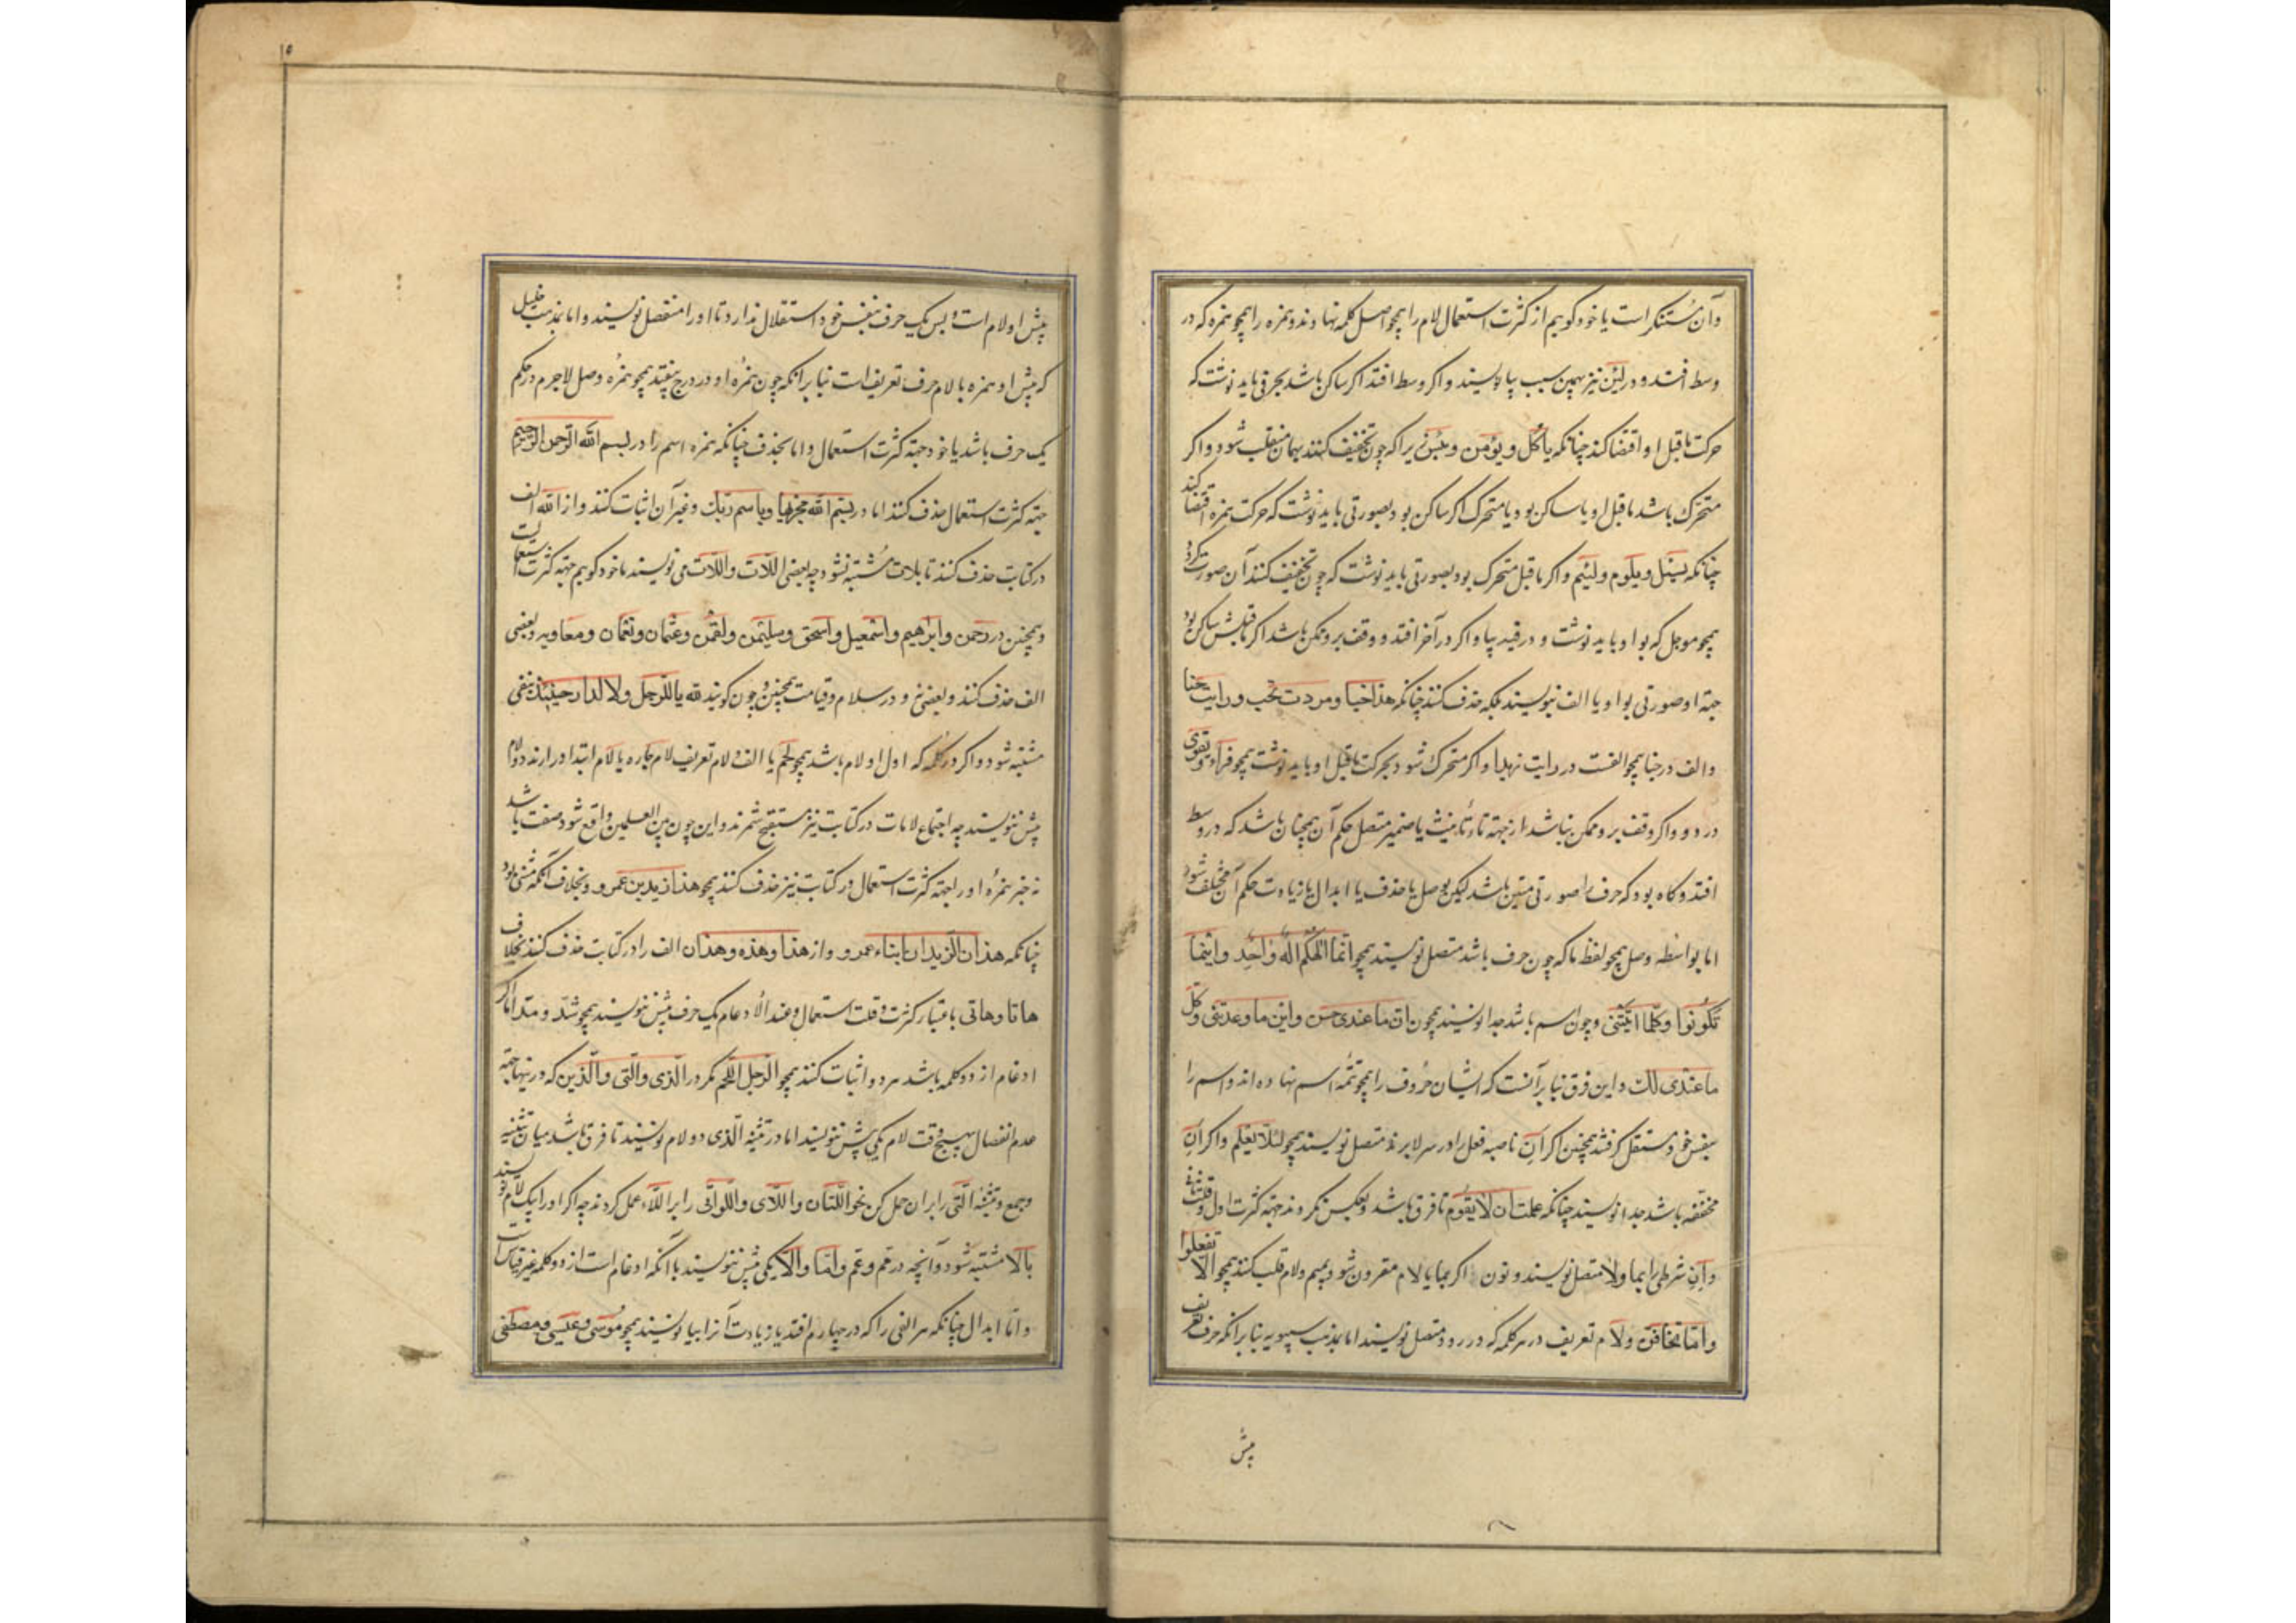 وآن مستنکر است یا خود کوییم از کثرت استعمال لام را همچو اصل کلمه نهادند و همزه را همچو همزه که در
وسط افتد و در لئن نیز بهمین سبب بیا نویسند و اکر وسط افتد اکر ساکن باشد بحرفی باید نوشت که
حرکت ماقبل او اقتضا کند چنانکه یأکل و یؤمن و بئس زیرا که چون تخفیف کنند بهمان منقلب شود و اکر
متحرک باشد ماقبل او یا ساکن بود یا متحرک اکر ساکن بود بصورتی باید نوشت که حرکت همزه اقتضا کند
چنانکه یسئل ویلوم ولیئم واکر ماقبل متحرک بود بصورتی باید نوشت که چون تخفیف کنند آن صورت کردد
همچو موجل که بواو باید نوشت و در فیه بیا و اکر در آخر افتد و وقف برو ممکن باشد اکر ماقبلش ساکن بود
جهة او صورتی بواو یا الف ننویسند بلکه حذف کنند چنانکه هذا خبا ومررت بخب ورایت خبا
والف در خبا همچو الفست در رایت زیدا و اکر متحرک شود بحرکت ماقبل او باید نوشت همچو قرأ و
در دو و اکر وقف برو ممکن نباشد از جهة تاء تأنیث یا ضمیر متصل حکم آن همچنان باشد که در وسط
افتد و کاه بود که حرف را صورتی متین باشد لیکن بوصل یا حذف یا ابدال یا زیادت حکم آن مختلف شود
اما بواسطه وصل همچو لفظ ما که چون حرف باشد متصل نویسند همچو انما الهکم اله واحد واینما
تکونوا وکلما اتیتنی و چون اسم باشد جدا نویسند همچون ان ما عندی حسن واین ما وعدتنی وکل
ما عندی لک و این فرق بنا بر آنست که ایشان حروف را همچو تتمه اسم نهاده اند و اسم را
بنفس خود مستقل کرفته همچنین اکر ان ناصبه فعل را در سر لا برند متصل نویسند همچو لئلا یعلم و اکر ان
مخففه باشد جدا نویسند چنانکه علمت ان لا یقوم تا فرق باشد و بعکس نکردند جهة کثرت اول و قلت ثانی
و ان شرطی را بما ولا متصل نویسند و نون اکر بما یا لام مقرون شود بمیم و لام قلب کنند همچو الا تفعلوا
واما تخافن ولام تعریف در هر کلمه که در رود متصل نویسند اما بمذهب سیبویه بنا برانکه حرف تعریف
پیش
پیش او لام است و بس یک حرف بنفس خود استقلال ندارد تا او را منفصل نویسند و اما بمذهب خلیل
که پیش او همزه با لام حرف تعریف است بنا برانکه چون همزه او در درج بیفتد همچو همزه وصل لاجرم در حکم
یک حرف باشد یا خود جهة کثرت استعمال و اما بحذف چنانکه همزه اسم را در بسم الله الرحمن الرحیم
جهة کثرت استعمال حذف کنند اما در بسم الله مجریها وباسم ربک وغیر آن اثبات کنند و از الله الف
در کتابت حذف کنند تا بلات مشتبه نشود چه بعضی اللات واللات می نویسند یا خود کوییم جهة کثرت استعمالست
و همچنین در رحمن وابراهیم واسمعیل واسحق وسلیمن ولقمن وعثمان ونعمان ومعاویه و بعضی
الف حذف کنند و بعضی نه و در سلام و قیامت همچنین و چون کویند لله یا للرجل ولا للدار حینئذ بنفی
مشتبه شود و اکر در کلمه که اول او لام باشد همچو لحم با الف ولام تعریف لام جاره یا لام ابتدا در ارند دو لام
پیش ننویسند چه اجتماع لامات در کتابت نیز مستقبح شمرند و ابن چون بین العلمین واقع شود صفت باشد
نه خبر همزه او را جهة کثرت استعمال در کتابت نیز حذف کنند همچو هذا زید بن عمرو و بخلاف آنکه مثنی بود
چنانکه هذان الزیدان ابناء عمرو و از هذا وهذه وهذان الف را در کتابت حذف کنند بخلاف
هاتا وهاتی باعتبار کثرت و قلت استعمال و عند الادغام یک حرف پیش ننویسند همچو شد ومد اما اکر
ادغام از دو کلمه باشد هر دو اثبات کنند همچو الرجل اللحم مکر در الذی والتی والذین که درینها جهة
عدم انفصال بهیچ وقت لام یکی پیش ننویسند اما در تثنیه الذی دو لام نویسند تا فرق باشد میان تثنیه
وجمع و تثنیه التی را بران حمل کن نحو اللتان واللای واللواتی را بر اللاء حمل کردند چه اکر او را بیک لام نویسند
بالا مشتبه شود و آنچه در مم وعم واما والا یکی پیش ننویسند با آنکه ادغام است از دو کلمه غیر قیاس است
واما ابدال چنانکه هر الفی را که در چهارم افتد یا زیادت آنرا بیا نویسند همچو موسی وعیسی ومصطفی